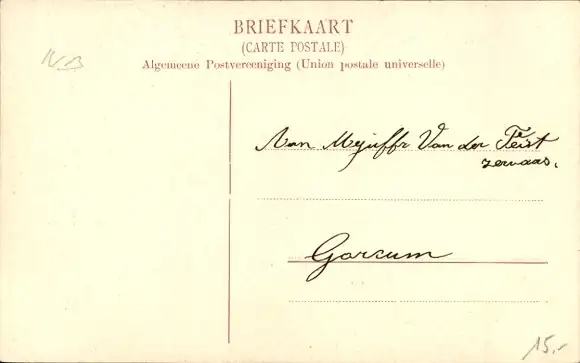 BRIEFKAART
(CARTE POSTALE)
Algemeene Postvereeniging (Union postale universelle)
NB
Aan Mejuffr Van der Feist
zervaas.
Gorcum
15.-